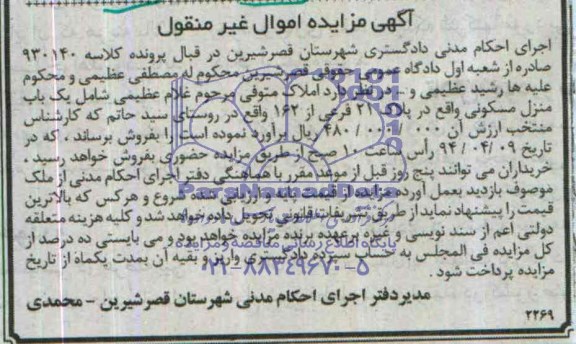 آگهی مزایده اموال غیر منقول
اجرای احکام مدنی دادگستری شهرستان قصرشیرین در قبال پرونده کلاسه ۹۳۰۱۴۰
صادره از شعبه اول دادگاه عمومی حقوقی قصرشیرین محکوم له مصطفی عظیمی و محکوم
علیه ها رشید عظیمی و ... در نظر دارد املاک متوفی مرحوم غلام عظیمی شامل یک باب
منزل مسکونی واقع در پلاک ۲۱ فرعی از ۱۶۲ واقع در روستای سید حاتم که کارشناس
منتخب ارزش آن ۴۸۰/۰۰۰/۰۰۰ ریال برآورد نموده است را بفروش برساند . که در
تاریخ ۹۴/۰۴/۰۹ رأس ساعت ۱۰ صبح از طریق مزایده حضوری بفروش خواهد رسید .
خریداران می توانند پنج روز قبل از موعد مقرر با هماهنگی دفتر اجرای احکام مدنی از ملک
موصوف بازدید بعمل آورده مزایده از قیمت پایه و ارزیابی شده شروع و هر کس که بالاترین
قیمت را پیشنهاد نماید از طریق تشریفات قانونی تحویل داده خواهد شد و کلیه هزینه متعلقه
دولتی اعم از سند نویسی و غیره برعهده برنده مزایده خواهد بود و می بایستی ده درصد از
کل مزایده فی المجلس به حساب سپرده دادگستری واریز و بقیه آن بمدت یکماه از تاریخ
مزایده پرداخت شود .
مدیردفتر اجرای احکام مدنی شهرستان قصرشیرین - محمدی
۲۲۶۹
ParsNamadData
پایگاه اطلاع رسانی مناقصه و مزایده
۰۲۱-۸۸۳۴۹۶۷۰-۵